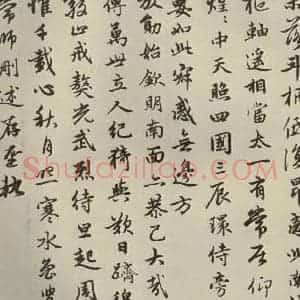 落斗柄低復昂感此南
樞軸遙相當太一有常居仰
煌中天照四國三辰環侍旁
要如此寂感無邊方
放勛始欽明南面亦恭己大哉
傳萬世立人紀猗與歎日躋穆
敬止戒獒光武烈待旦起周
惟千載心秋月照寒水魯
常師刪述存聖軌
Shufaziliao.com